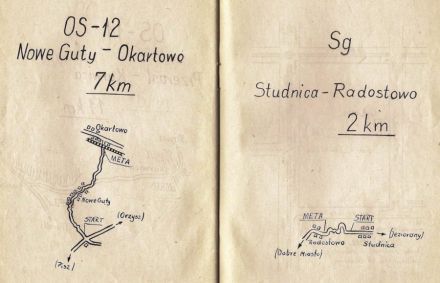 OS-12
Nowe Guty - Okartowo
7 km
Okartowo
META
Nowe Guty
START
(Orzysz)
(Pisz)
Sg
Studnica - Radostowo
2 km
META
START
(Jeziorany)
Radostowo
Studnica
(Dobre Miasto)